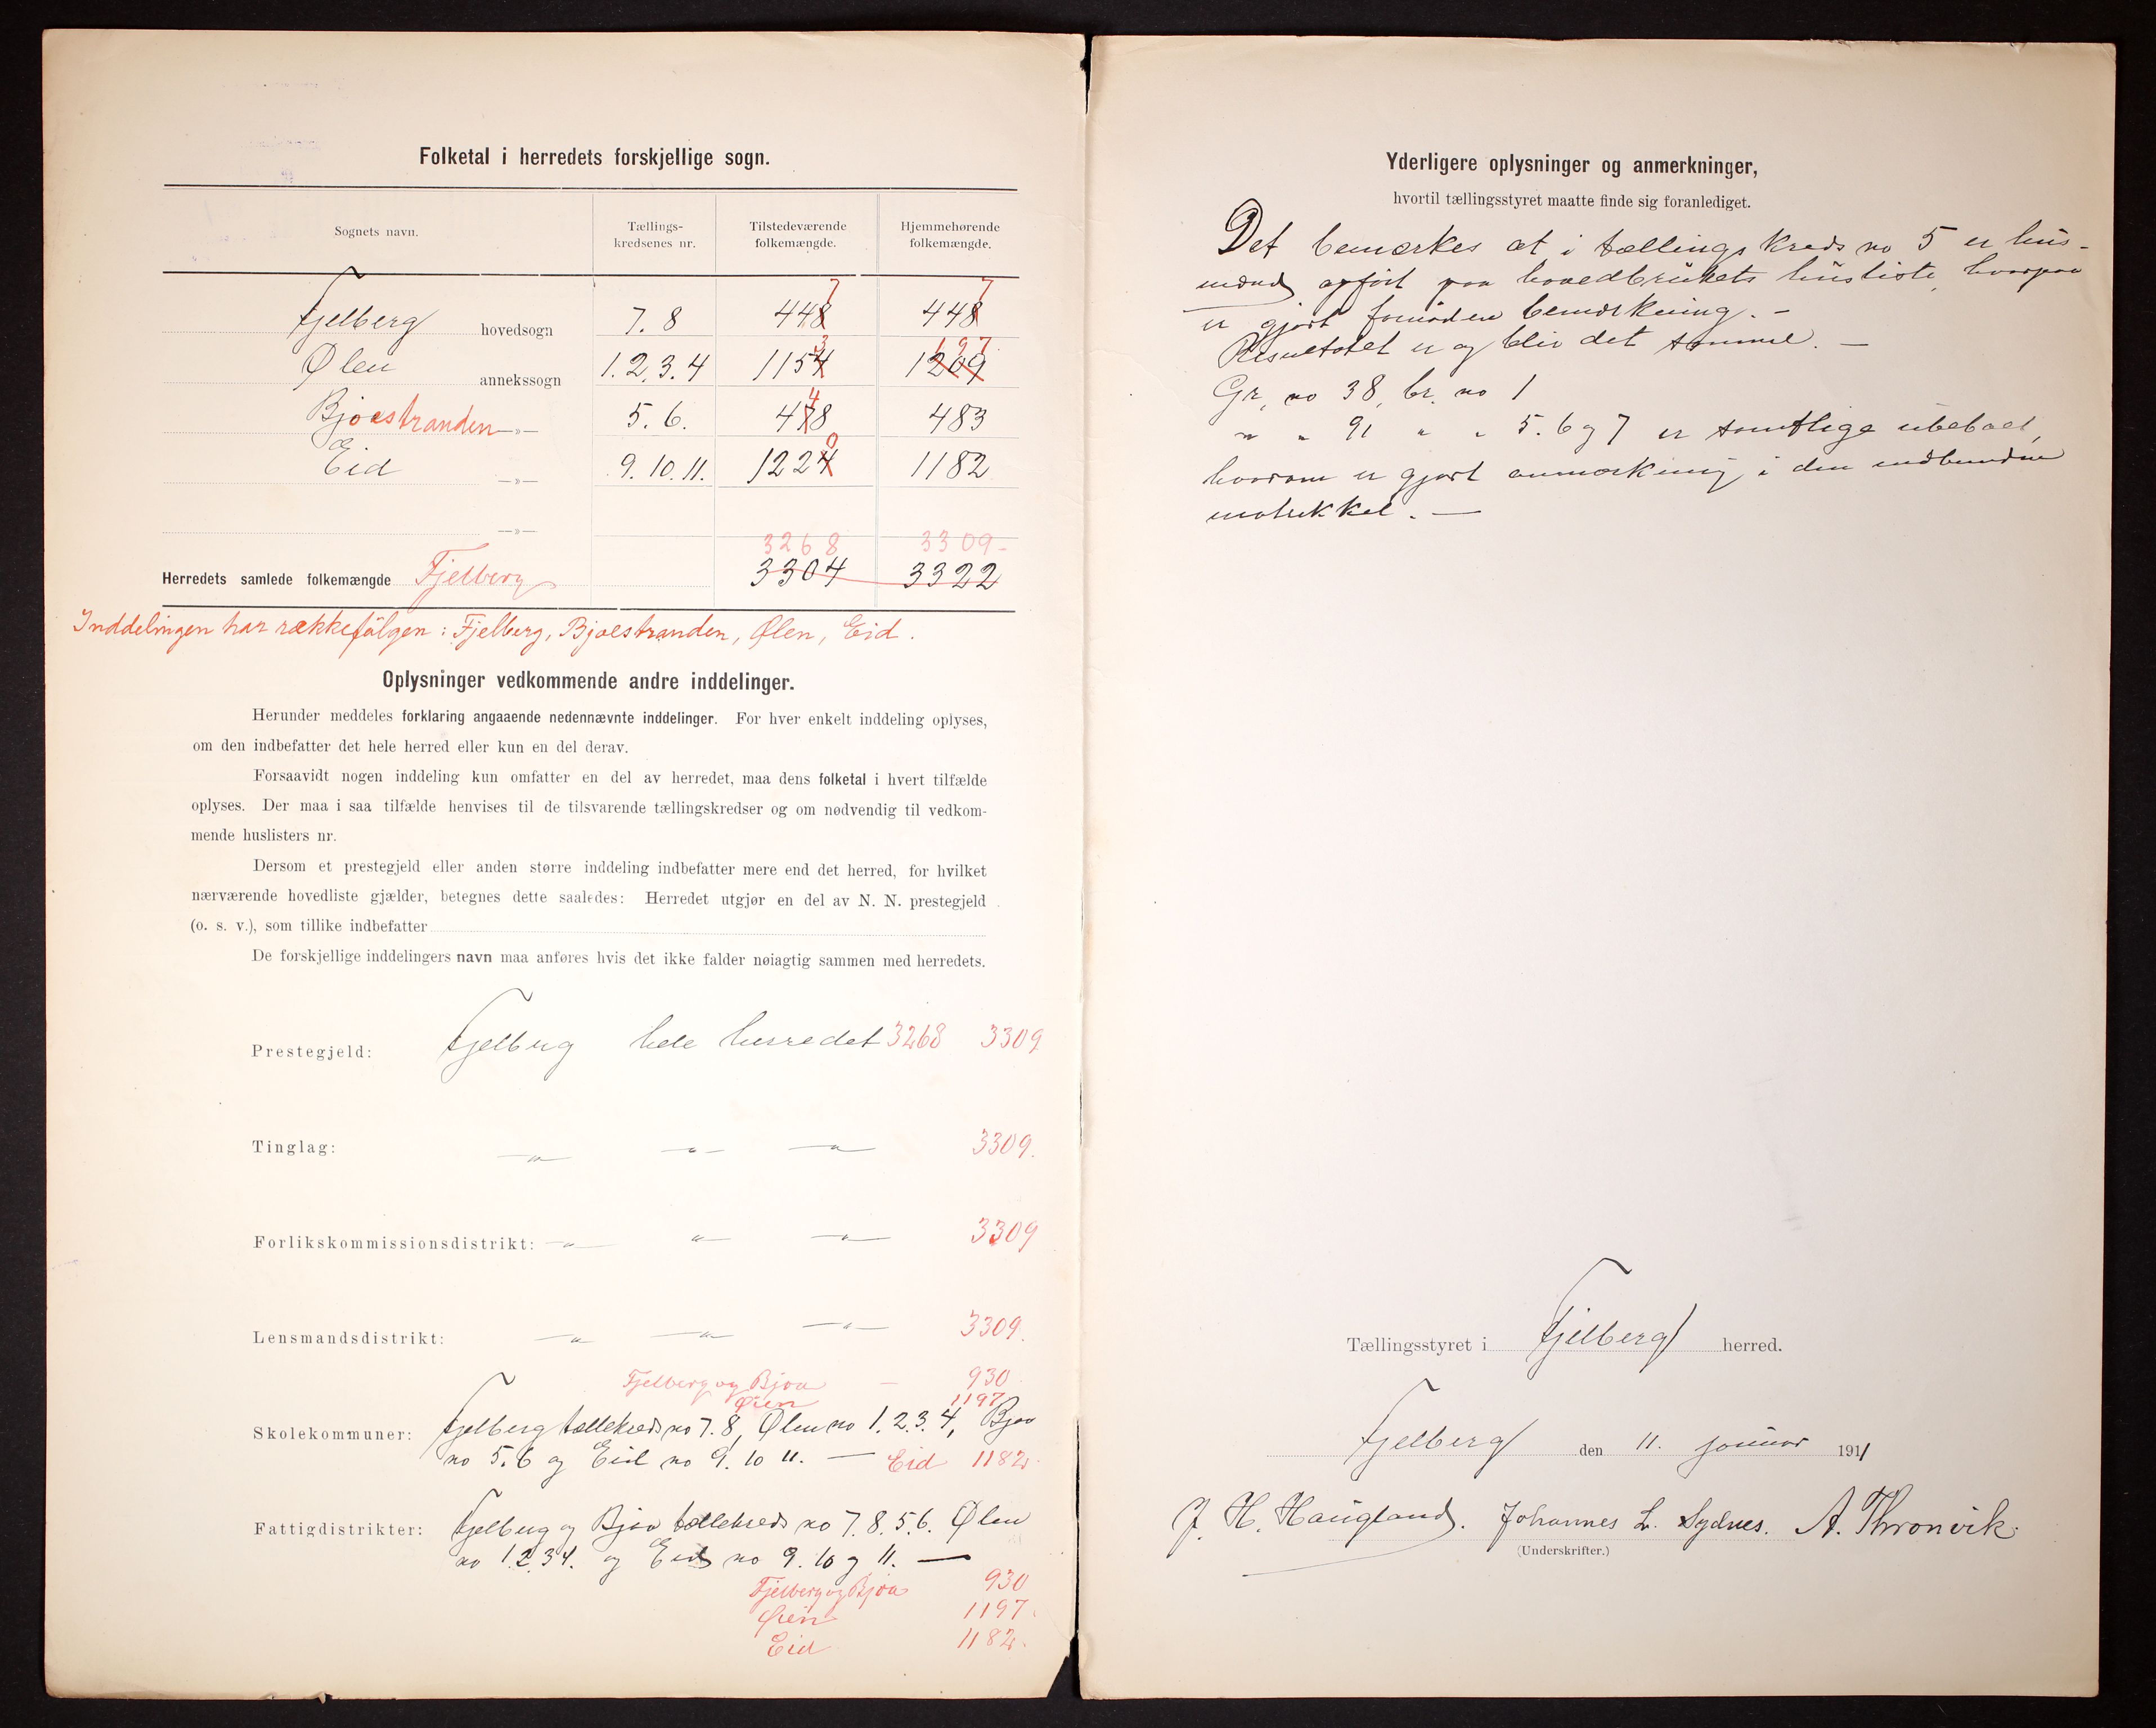 Folketal i herredets forskjellige sogn.
Sognets navn. Tællings-kredsenes nr. Tilstedeværende folkemængde. Hjemmehørende folkemængde.
Fjelberg hovedsogn 7. 8 448 7 448 7
Ølen annekssogn 1. 2. 3. 4 1154 3 1209 197
Bjoestranden —»— 5. 6. 478 4 483
Eid —»— 9. 10. 11. 1224 0 1182
—»—
3268 3309-
Herredets samlede folkemængde Fjelberg 3304 3322
Inddelingen har rækkefølgen: Fjelberg, Bjoestranden, Ølen, Eid.
Oplysninger vedkommende andre inddelinger.
Herunder meddeles forklaring angaaende nedennævnte inddelinger. For hver enkelt inddeling oplyses,
om den indbefatter det hele herred eller kun en del derav.
Forsaavidt nogen inddeling kun omfatter en del av herredet, maa dens folketal i hvert tilfælde
oplyses. Der maa i saa tilfælde henvises til de tilsvarende tællingskredser og om nødvendig til vedkom-
mende huslisters nr.
Dersom et prestegjeld eller anden større inddeling indbefatter mere end det herred, for hvilket
nærværende hovedliste gjælder, betegnes dette saaledes: Herredet utgjør en del av N. N. prestegjeld
(o. s. v.), som tillike indbefatter
De forskjellige inddelingers navn maa anføres hvis det ikke falder nøiagtig sammen med herredets.
Prestegjeld: Fjelberg hele herredet 3268 3309
Tinglag: —"— —"— —"— 3309.
Forlikskommissionsdistrikt: —"— —"— —"— 3309
Lensmandsdistrikt: —"— —"— —"— 3309.
Fjelberg og Bjoa — 930
Ølen 1197
Skolekommuner: Fjelberg tællekreds no 7. 8, Ølen no 1. 2. 3. 4, Bjoa
no 5. 6 og Eid no 9. 10 11. — Eid 1182.
Fattigdistrikter: Fjelberg og Bjoa tællekreds no 7. 8. 5. 6. Ølen
no 1 2 3 4. og Eid no 9. 10 og 11. —
Fjelberg og Bjoa 930
Ølen 1197.
Eid 1182.
Yderligere oplysninger og anmerkninger,
hvortil tællingsstyret maatte finde sig foranlediget.
Det bemærkes at i tællingskreds no 5 er hus-
mænd opført paa hovedbrukets husliste, hvorpaa
er gjort fornøden bemærkning. —
Resultatet er og blir det samme. —
Gr, no 38, br. no 1
" " 91 " " 5. 6 og 7 er samtlige ubeboet,
hvorom er gjort anmærkning i den indbundne
matrikkel. —
Tællingsstyret i Fjelberg herred.
Fjelberg den 11. januar 1911
J. H. Haugland. Johannes L. Sydnes. A. Thronvik.
(Underskrifter.)